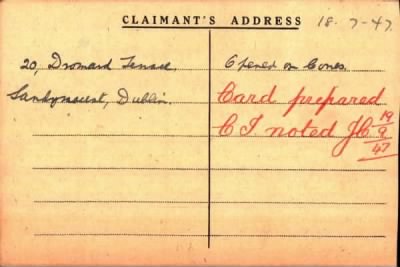 CLAIMANT'S ADDRESS
18-7-47
20, Dromard Terrace,
Sandymount, Dublin.
Opened on Cones.
Card prepared
C I noted JC 19/9/47